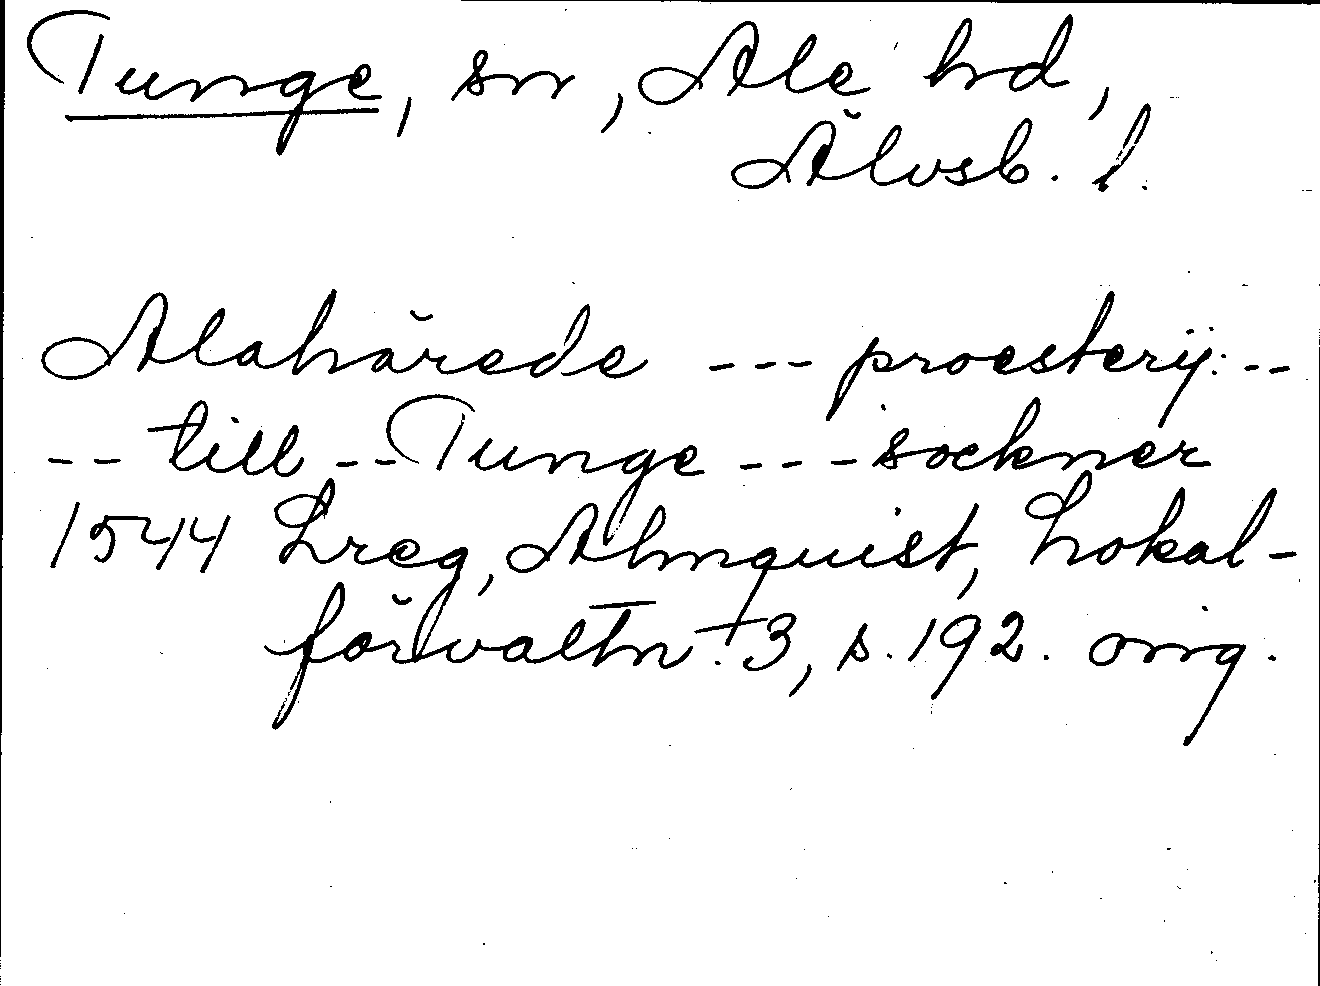 Tunge, sn, Ale hd,
Älvsb. l.
Alahärede --- proesterij: --
-- till -- Tunge --- sockner
1544 Lreg, Almquist, Lokal-
förvaltn. 3, s. 192. orig.